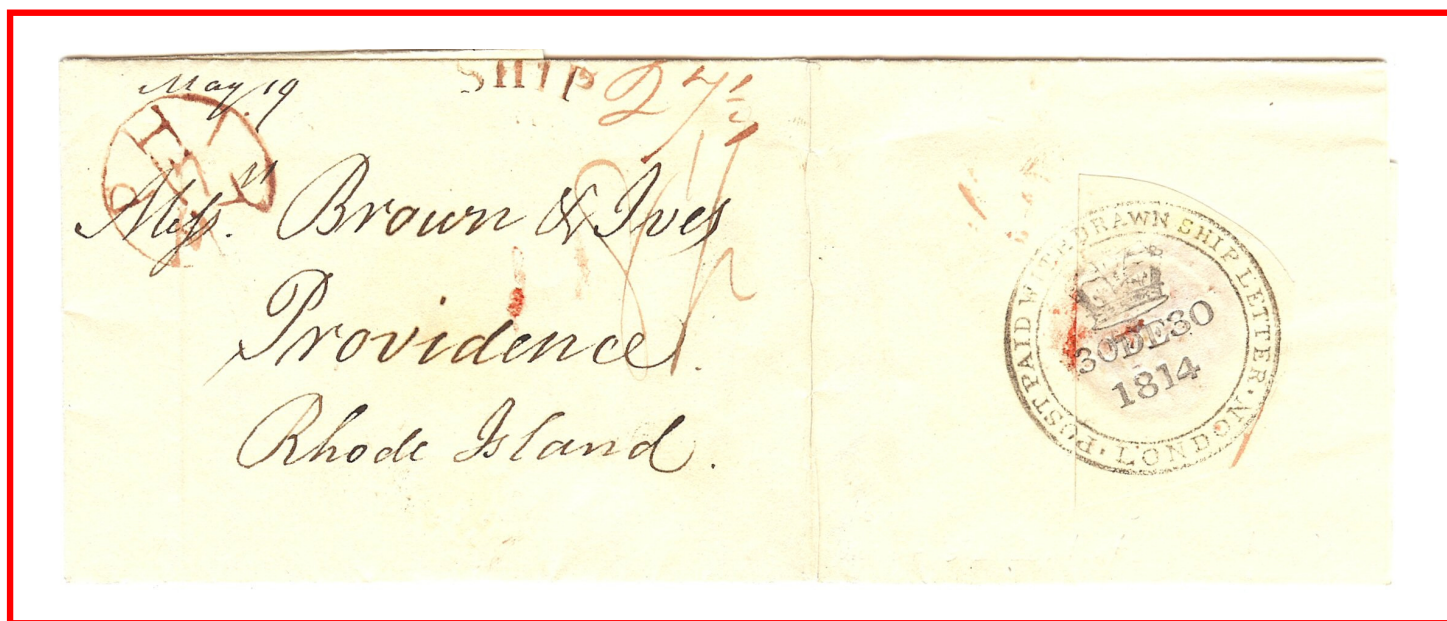 May. 19
SHIP 27½
Mess.rs Brown & Ives
Providence
Rhode Island.
POST PAID WITHDRAWN SHIP LETTER · LONDON ·
30DE30
1814